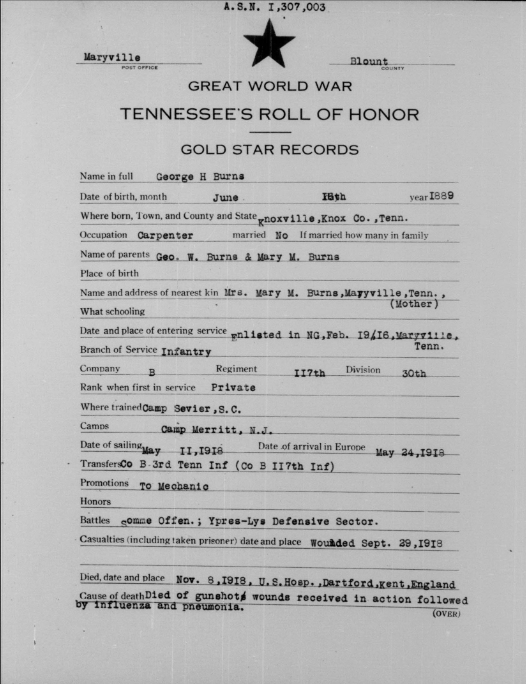 A.S.N. I,307,003
Maryville
POST OFFICE
Blount
COUNTY
GREAT WORLD WAR
TENNESSEE'S ROLL OF HONOR
GOLD STAR RECORDS
Name in full George H Burns
Date of birth, month June 18th year I889
Where born, Town, and County and State Knoxville,Knox Co.,Tenn.
Occupation Carpenter married No If married how many in family
Name of parents Geo. W. Burns & Mary M. Burns
Place of birth
Name and address of nearest kin Mrs. Mary M. Burns,Maryville,Tenn.,
(Mother)
What schooling
Date and place of entering service Enlisted in NG,Feb. I9/I6,Maryville,
Tenn.
Branch of Service Infantry
Company B Regiment II7th Division 30th
Rank when first in service Private
Where trained Camp Sevier,S.C.
Camps Camp Merritt, N.J.
Date of sailing May II,I9I8 Date of arrival in Europe May 24,I9I8
Transfers Co B 3rd Tenn Inf (Co B II7th Inf)
Promotions To Mechanic
Honors
Battles Somme Offen.; Ypres-Lys Defensive Sector.
Casualties (including taken prisoner) date and place Wounded Sept. 29,I9I8
Died, date and place Nov. 8,I9I8, U.S.Hosp.,Dartford,Kent,England
Cause of death Died of gunshot wounds received in action followed
by influenza and pneumonia.
(OVER)